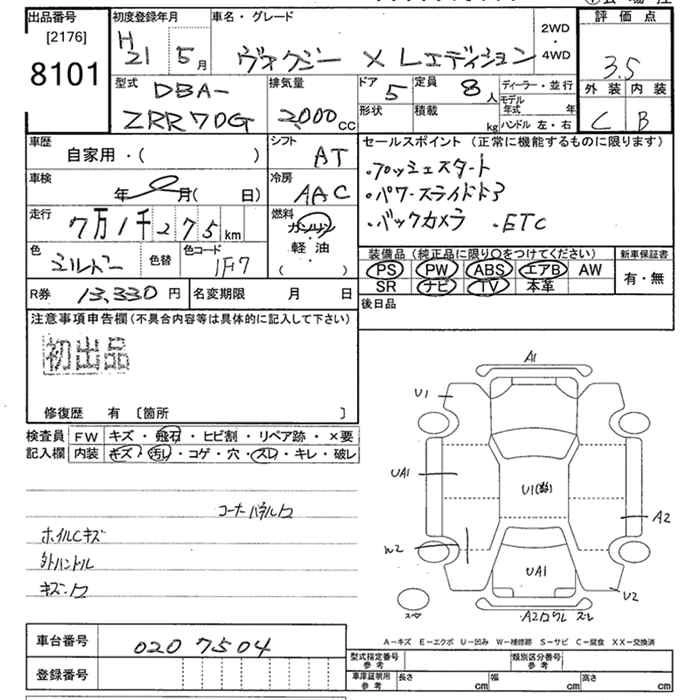 出品番号
[2176]
8101
初度登録年月
H
21 5月
車名・グレード
ヴォクシー X Lエディション
2WD
・
4WD
評価点
3.5
外装 内装
C B
型式
DBA-
ZRR70G
排気量
2,000cc
ドア
5
形状
定員
8人
積載
kg
ディーラー・並行
モデル年式 年
ハンドル 左・右
車歴
自家用・( )
シフト
AT
車検
年 月( 日)
冷房
AAC
走行
7万1千275km
燃料
ガソリン
・
軽油
・
( )
色
シルバー
色替
色コード
1F7
R券 13,330円
名変期限 月 日
セールスポイント(正常に機能するものに限ります)
・プッシュスタート
・パワースライドドア
・バックカメラ ・ETC
装備品(純正品に限り○をつけてください)
PS PW ABS エアB AW
SR ナビ TV 本革
新車保証書
有・無
後日品
注意事項申告欄(不具合内容等は具体的に記入して下さい)
初出品
修復歴 有 〔箇所 〕
検査員
記入欄
FW キズ・飛石・ヒビ割・リペア跡・×要
内装 キズ・汚レ・コゲ・穴・スレ・キレ・破レ
ホイルCキズ
外ハンドル
A1
U1
UA1
W2
A2
U2
UA1
A-キズ E-エクボ U-凹み W-補修跡 S-サビ C-腐食 XX-交換済
車台番号 0207504
登録番号
型式指定番号
参考
類別区分番号
参考
車庫証明用
参考
長さ cm 幅 cm 高さ cm